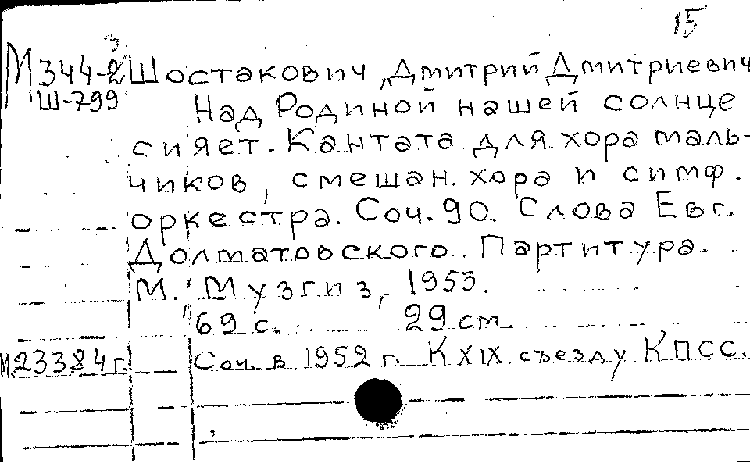 15
3
М344-2 Шостакович, Дмитрий Дмитриевич
Ш-799 Над Родиной нашей солнце
сияет. Кантата для хора маль-
чиков, смешан. хора и симф.
оркестра. Соч. 90. Слова Евг.
Долматовского. Партитура.
М. Музгиз, 1953.
69 с. 29 см
М23384г. Соч. в 1952 г. К XIX съезду КПСС.